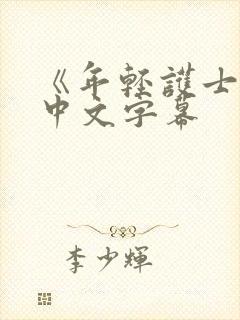 《年輕護士
中文字幕
李少輝